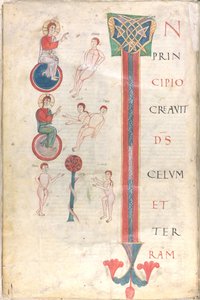 IN
PRIN
CIPIO
CREAVIT
DS
CELUM
ET
TER
RAM·